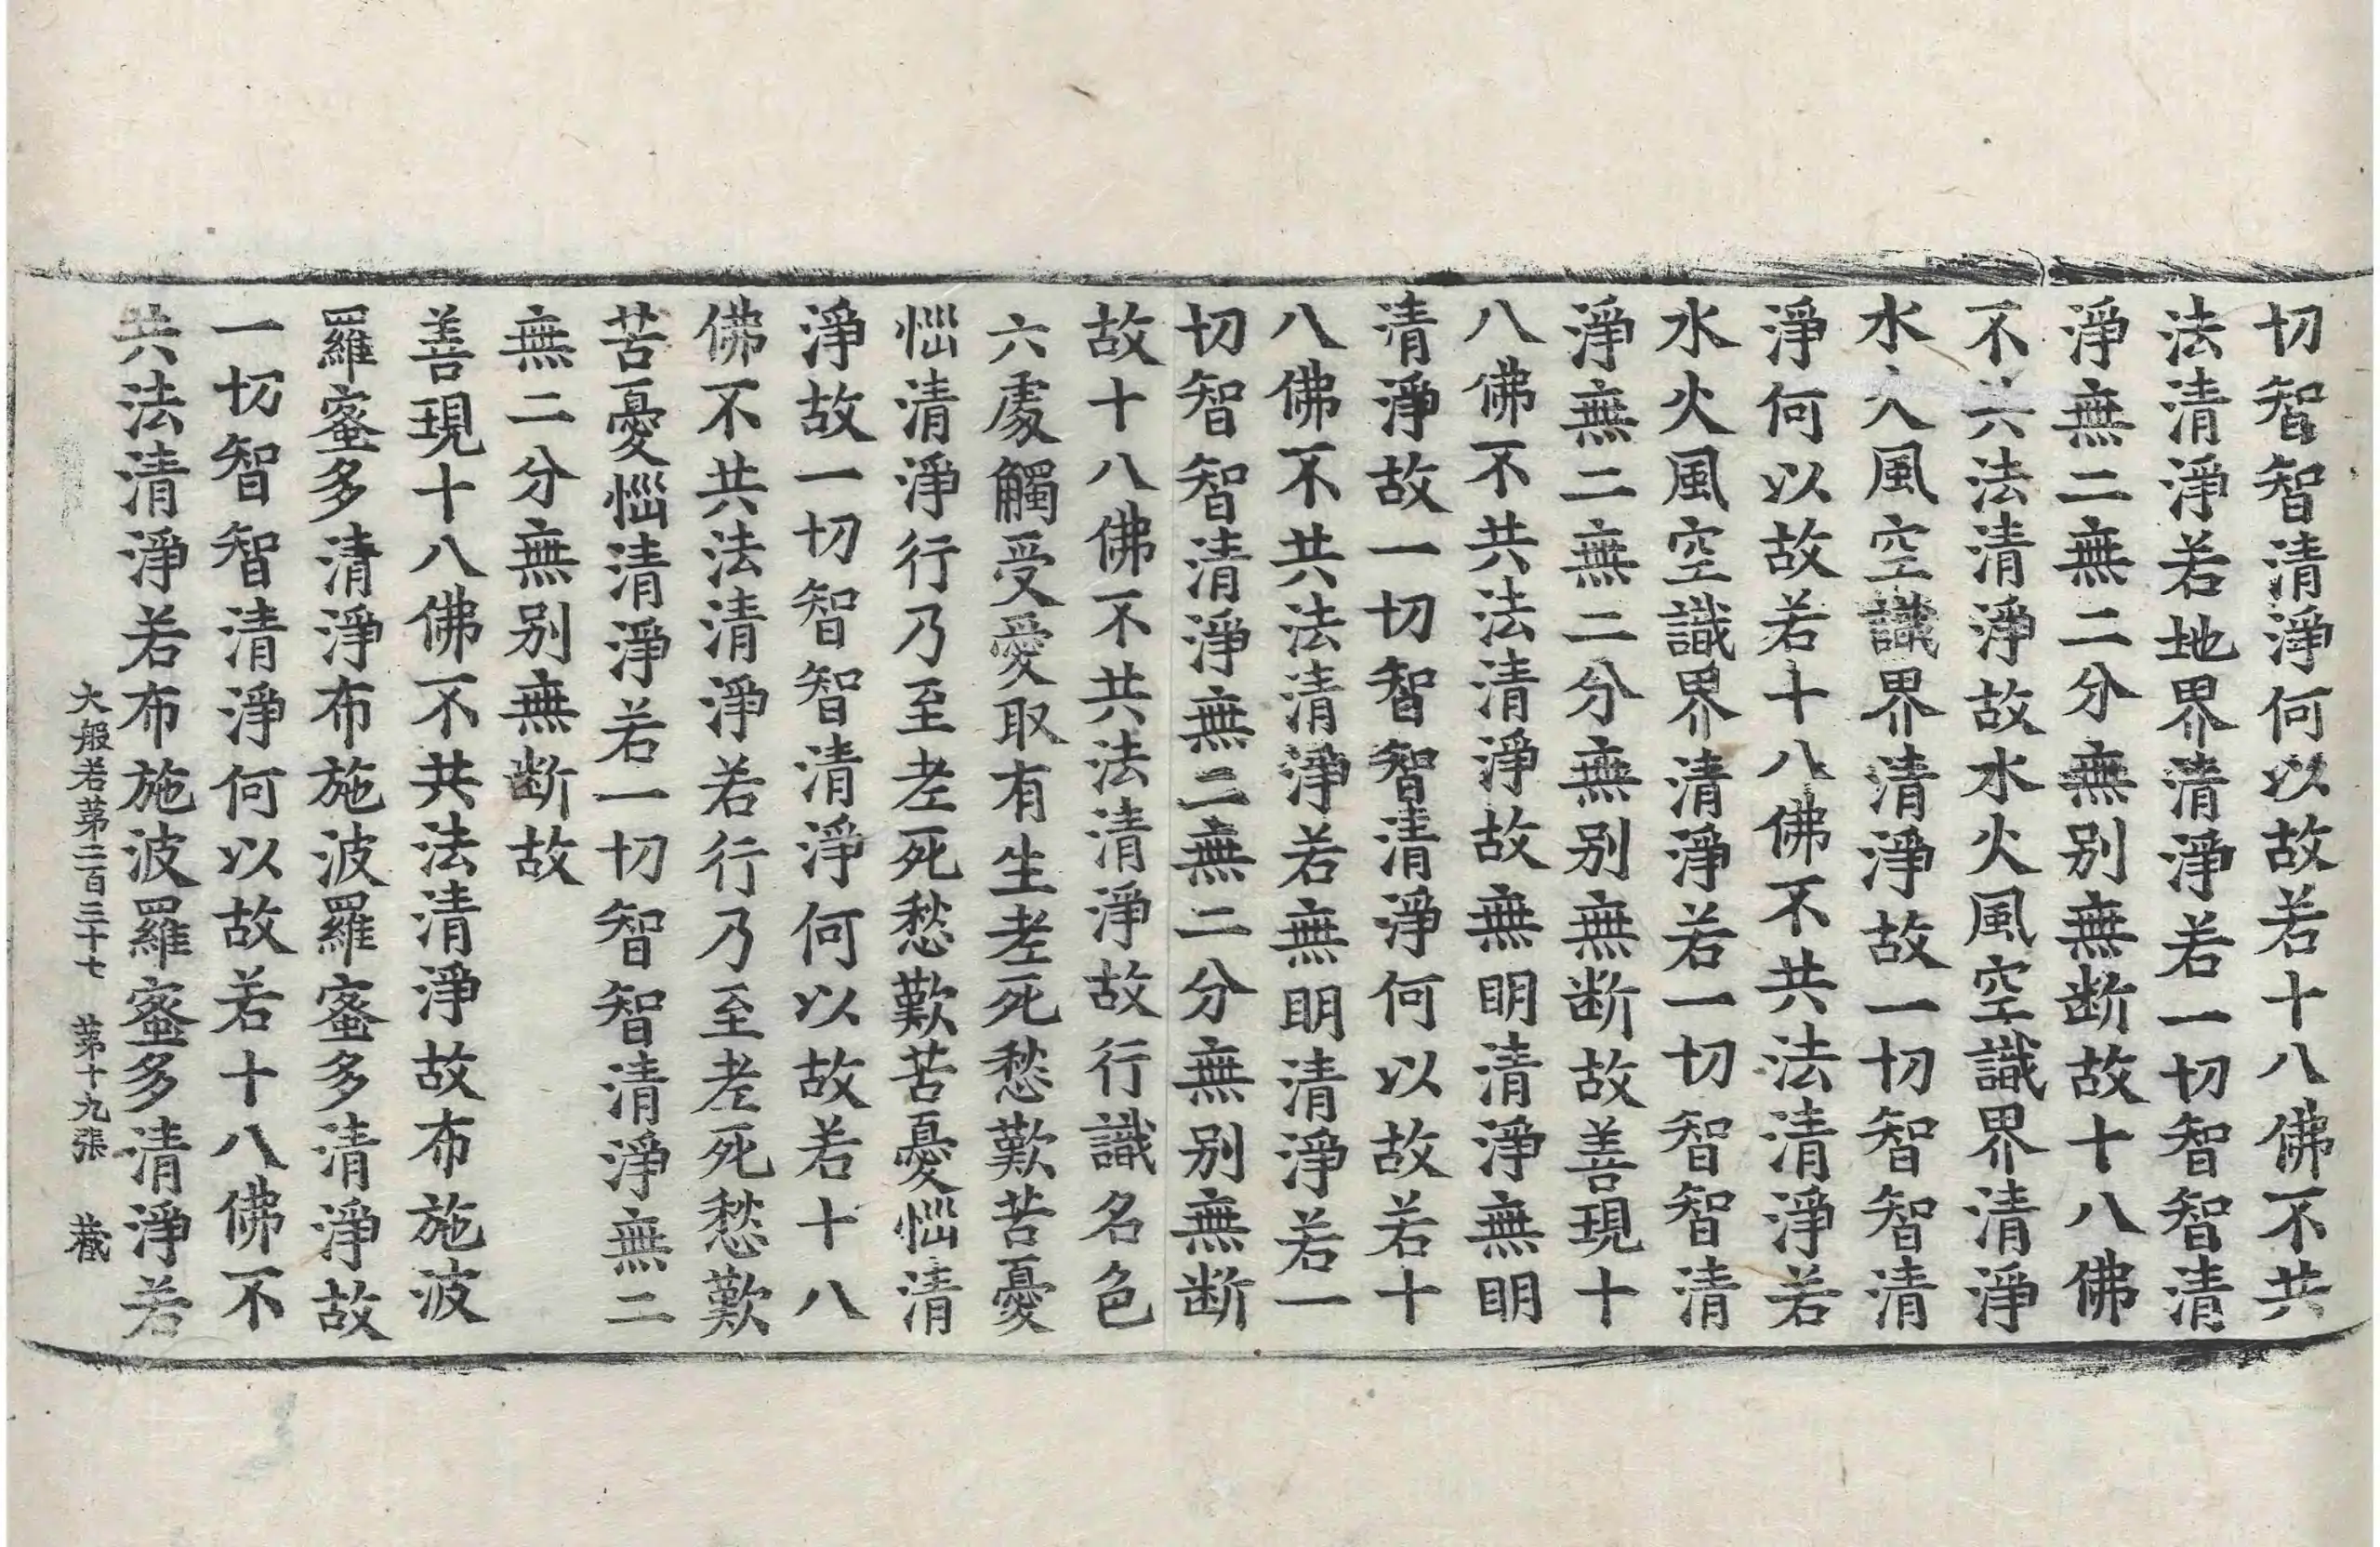 切智智清淨何以故若十八佛不共
法清淨若地界清淨若一切智智清
淨無二無二分無別無斷故十八佛
不六法清淨故水火風空識界清淨
水入風空識界清淨故一切智智清
淨何以故若十八佛不共法清淨若
水火風空識界清淨若一切智智清
淨無二無二分無別無斷故善現十
八佛不共法清淨故無明清淨無明
清淨故一切智智清淨何以故若十
八佛不共法清淨若無明清淨若一
切智智清淨無二無二分無別無斷
故十八佛不共法清淨故行識名色
六處觸受愛取有生老死愁歎苦憂
惱清淨行乃至老死愁歎苦憂惱清
淨故一切智智清淨何以故若十八
佛不共法清淨若行乃至老死愁歎
苦憂惱清淨若一切智智清淨無二
無二分無別無斷故
善現十八佛不共法清淨故布施波
羅蜜多清淨布施波羅蜜多清淨故
一切智智清淨何以故若十八佛不
共法清淨若布施波羅蜜多清淨若
大般若第二百三十七 第十九張